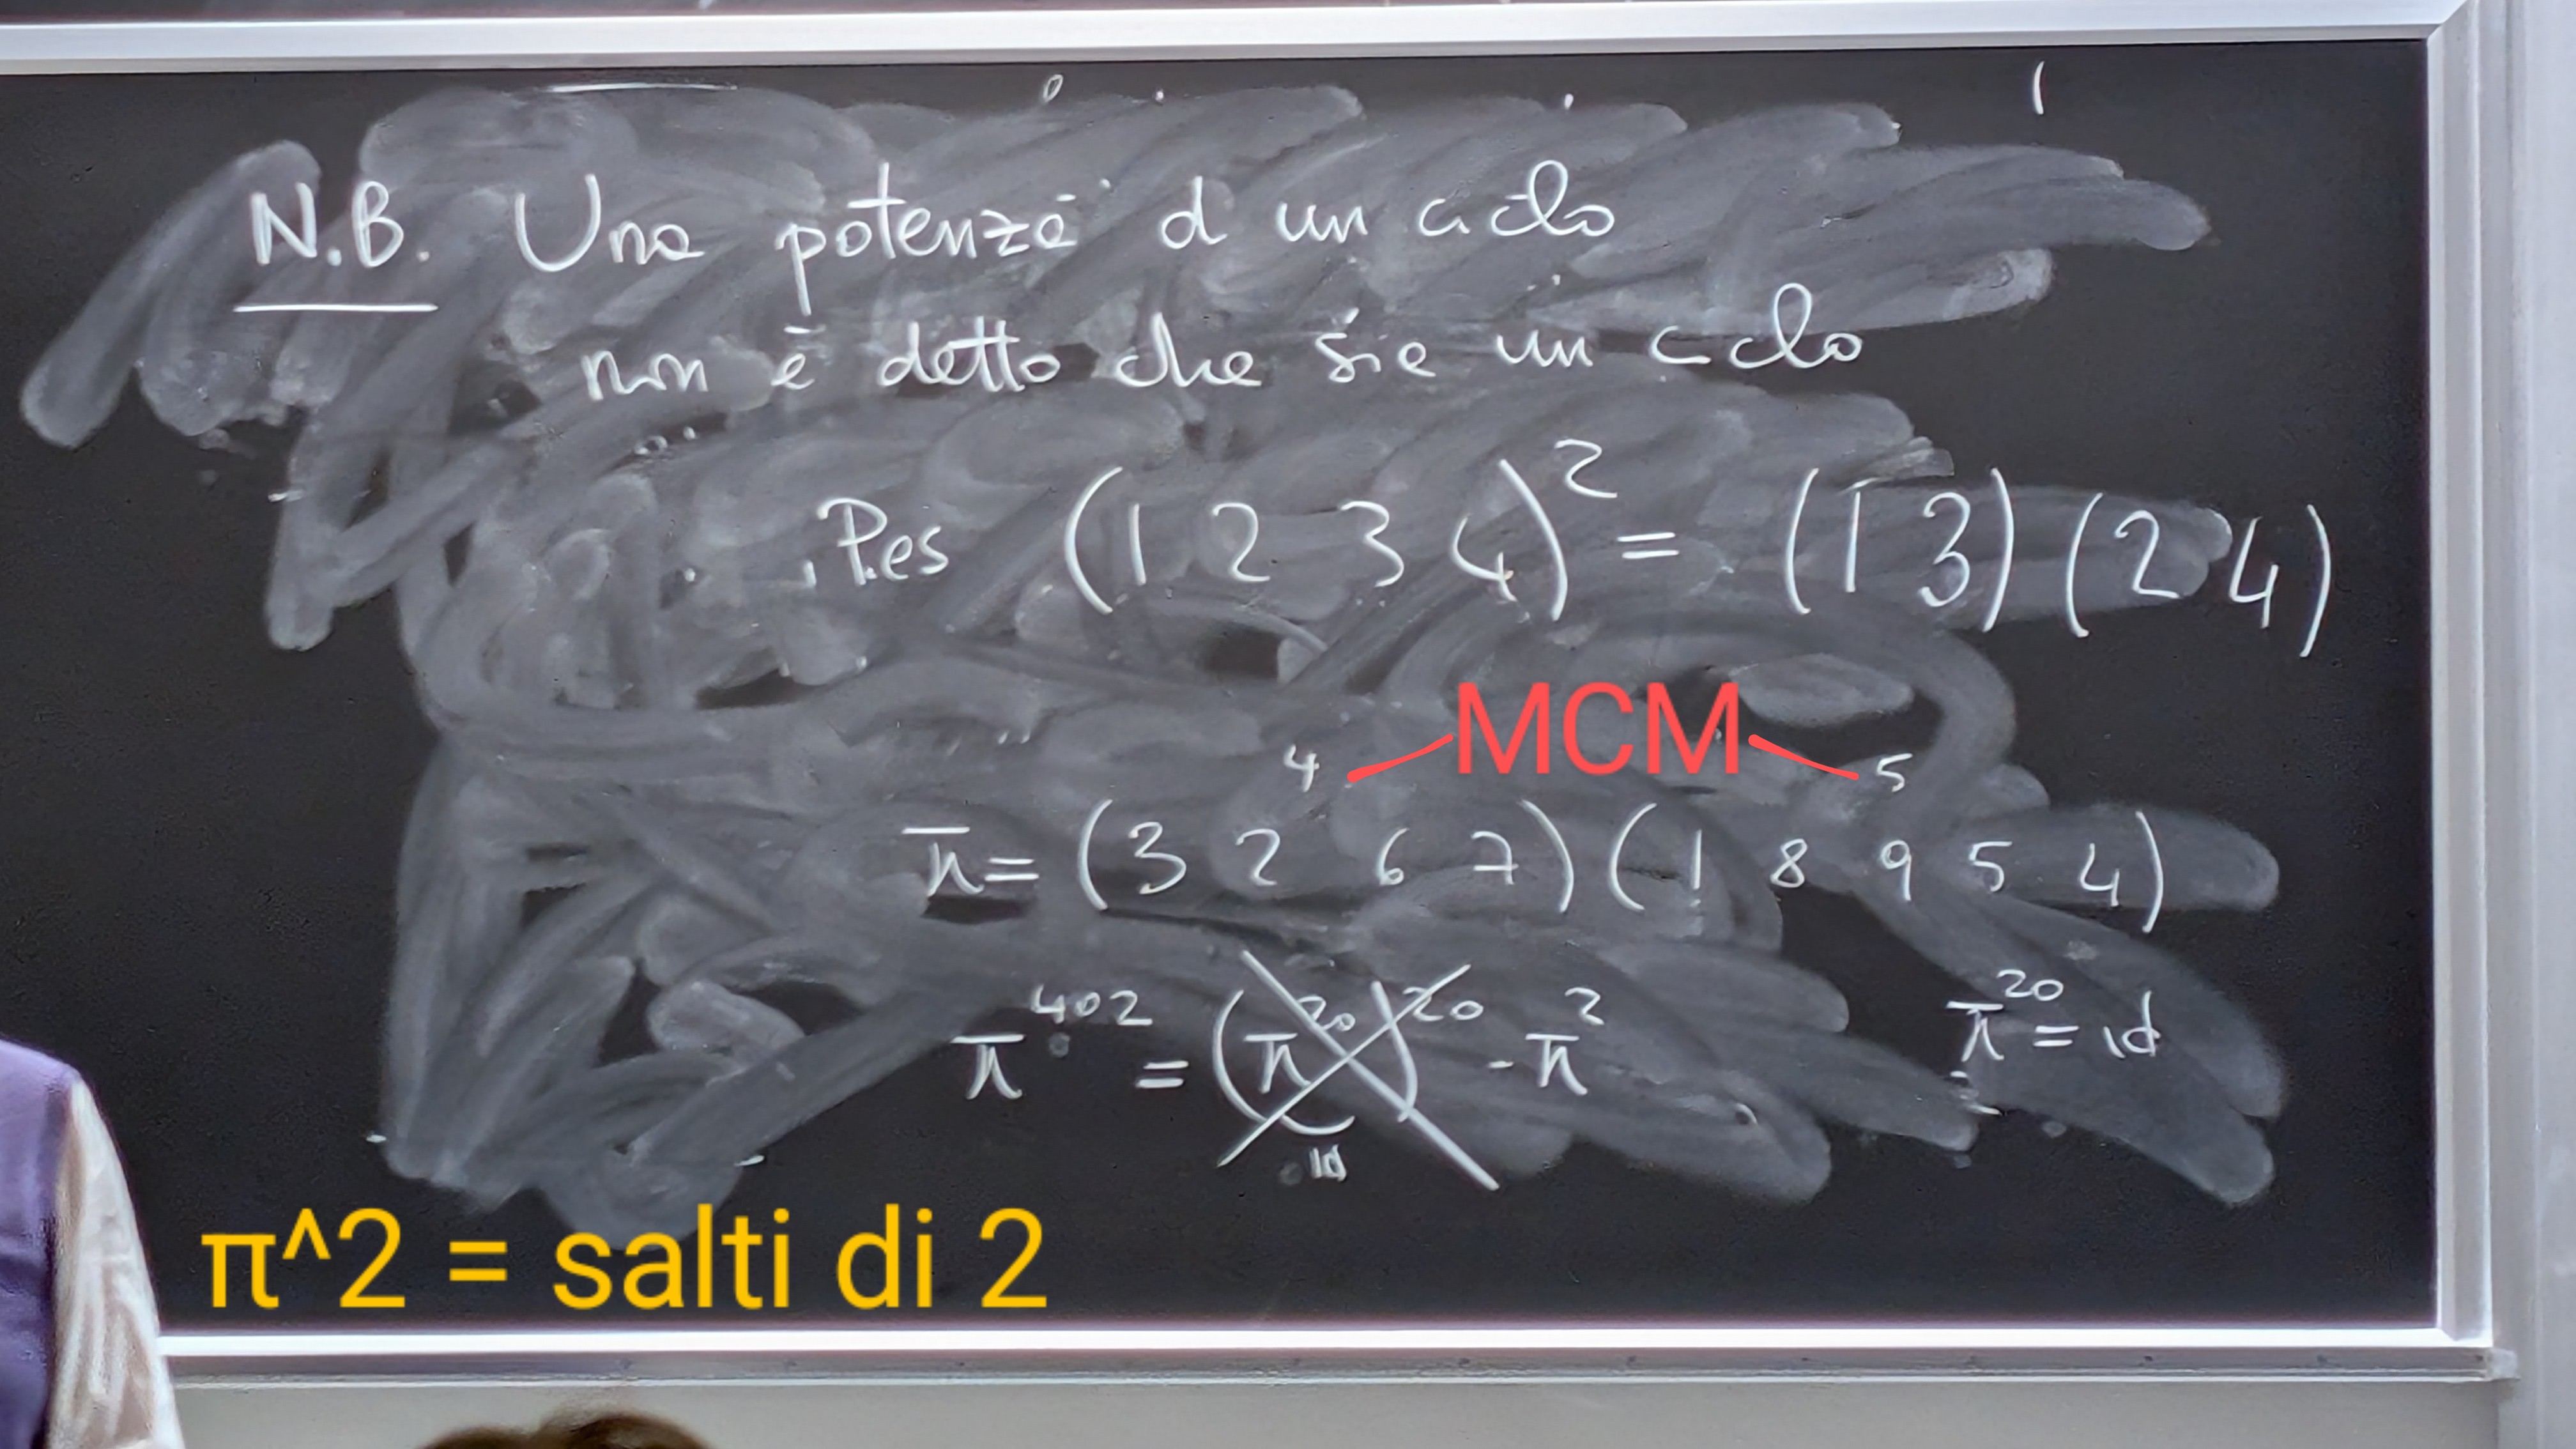 N.B. Una potenza d un ciclo
non è detto che sia un ciclo
P.es (1 2 3 4)² = (1 3)(2 4)
MCM
4 5
π = (3 2 6 7)(1 8 9 5 4)
π⁴⁰² = (π²⁰)²⁰ · π² π²⁰ = id
id
π^2 = salti di 2